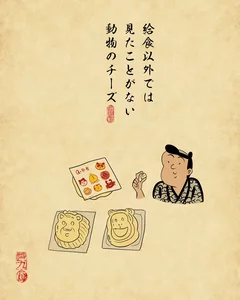 給食以外では
見たことがない
動物のチーズ